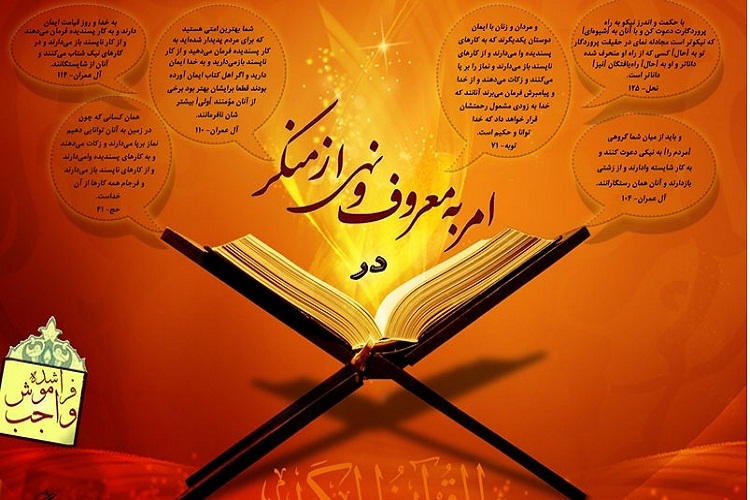 با حکمت و اندرز نیکو به راه
پروردگارت دعوت کن و با آنان به [شیوه‌ای]
که نیکوتر است مجادله نمای در حقیقت پروردگار
تو به [حال] کسی که از راه او منحرف شده
داناتر و او به [حال] راه‌یافتگان [نیز]
داناتر است.
نحل- ۱۲۵
و مردان و زنان با ایمان
دوستان یکدیگرند که به کارهای
پسندیده وا می‌دارند و از کارهای
ناپسند باز می‌دارند و نماز را بر پا
می‌کنند و زکات می‌دهند و از خدا
و پیامبرش فرمان می‌برند آنانند که
خدا به زودی مشمول رحمتشان
قرار خواهد داد که خدا
توانا و حکیم است.
توبه- ۷۱
شما بهترین امتی هستید
که برای مردم پدیدار شده‌اید به
کار پسندیده فرمان می‌دهید و از کار
ناپسند بازمی‌دارید و به خدا ایمان
دارید و اگر اهل کتاب ایمان آورده
بودند قطعا برایشان بهتر بود برخی
از آنان مؤمنند [ولی] بیشتر
شان نافرمانند.
آل عمران- ۱۱۰
به خدا و روز قیامت ایمان
دارند و به کار پسندیده فرمان می‌دهند
و از کار ناپسند باز می‌دارند و در
کارهای نیک شتاب می‌کنند و
آنان از شایستگانند.
آل عمران- ۱۱۴
و باید از میان شما گروهی
[مردم را] به نیکی دعوت کنند و
به کار شایسته وادارند و از زشتی
بازدارند و آنان همان رستگارانند.
آل عمران- ۱۰۴
همان کسانی که چون
در زمین به آنان توانایی دهیم
نماز برپا می‌دارند و زکات می‌دهند
و به کارهای پسندیده وامی‌دارند
و از کارهای ناپسند باز می‌دارند
و فرجام همه کارها از آن
خداست.
حج- ۴۱
امر به معروف و نهی از منکر
در
فراموش شده
واجب
القرآن الکریم